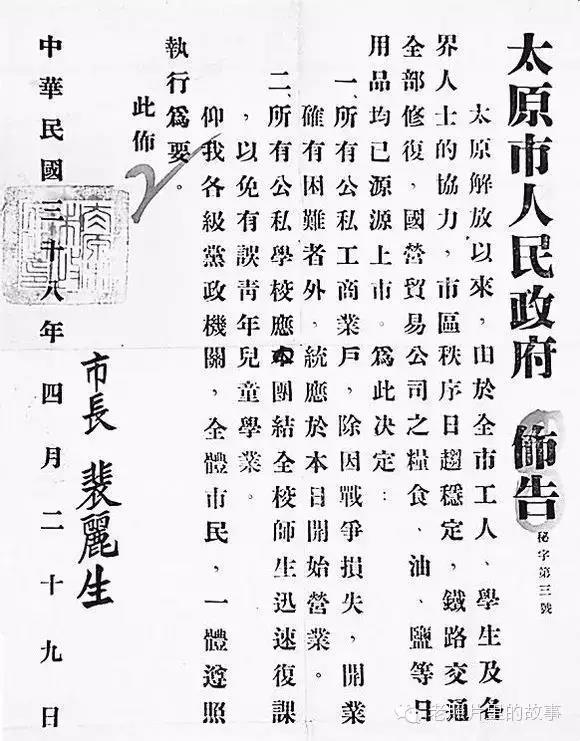 太原市人民政府 佈告
秘字第三號
太原解放以來，由於全市工人、學生及各
界人士的協力，市區秩序日趨穩定，鐵路交通
全部修復，國營貿易公司之糧食、油、鹽等日
用品均已源源上市。爲此決定：
一、所有公私工商業戶，除因戰爭損失，開業
確有困難者外，統應於本日開始營業。
二、所有公私學校應團結全校師生迅速復課
，以免有誤靑年兒童學業。
仰我各級黨政機關，全體市民，一體遵照
執行爲要。
此佈
市長 裴麗生
中華民國三十八年四月二十九日
老照片里的故事